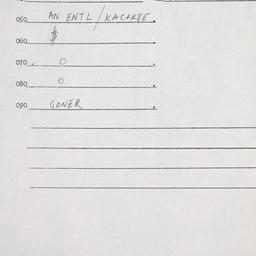 050 AN ENTL / KACHKPE.
060 $
070 0
080 0
090 GONER